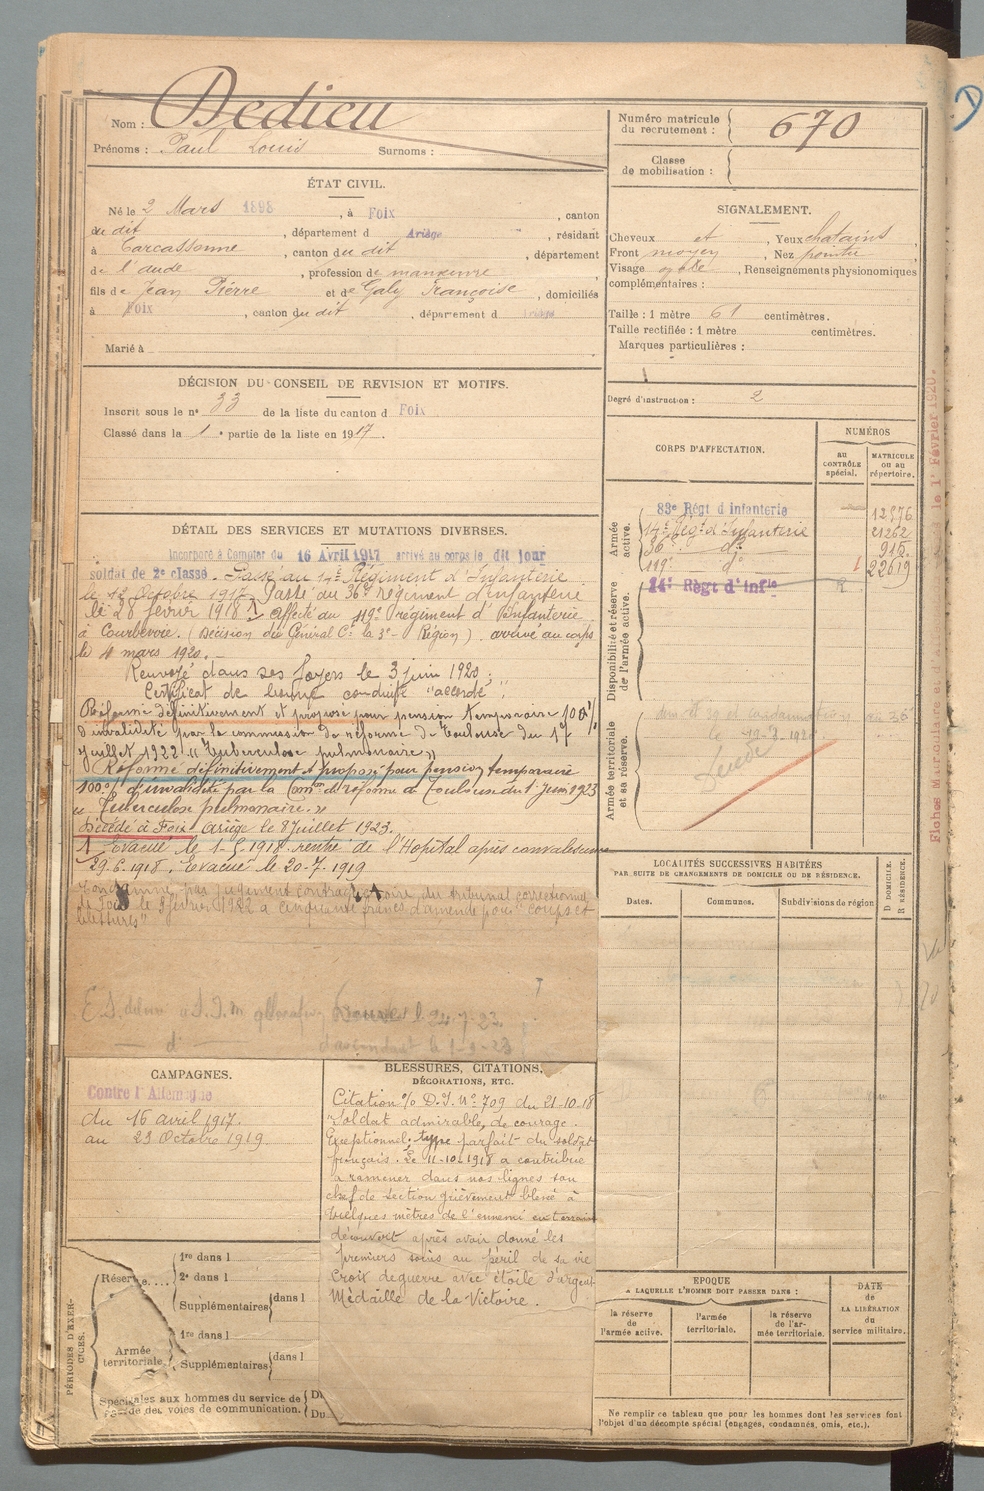 Nom : Dedieu
Prénoms : Paul Louis Surnoms :
Numéro matricule
du recrutement : 670
Classe
de mobilisation :
ÉTAT CIVIL.
Né le 2 Mars 1898, à Foix, canton
du dit, département d Ariège, résidant
à Carcassonne, canton du dit, département
de l'aude, profession de manœuvre
fils de Jean Pierre et de Galy Françoise, domiciliés
à Foix, canton du dit, département d
Marié à
SIGNALEMENT.
Cheveux et, Yeux chatains
Front moyen, Nez pointu
Visage ovale, Renseignements physionomiques
complémentaires :
Taille : 1 mètre 61 centimètres.
Taille rectifiée : 1 mètre centimètres.
Marques particulières :
Degré d'instruction : 2
DÉCISION DU CONSEIL DE REVISION ET MOTIFS.
Inscrit sous le n° 33 de la liste du canton d Foix
Classé dans la 1e partie de la liste en 1917.
CORPS D'AFFECTATION.
NUMÉROS
AU CONTRÔLE spécial.
MATRICULE OU AU répertoire.
Armée active.
83e Régt d'infanterie 12976
14e Régt d'Infanterie 21262
36e do 915
119e do 22619
Disponibilité et réserve de l'armée active.
14e Régt d'Infie
Armée territoriale et sa réserve.
DÉTAIL DES SERVICES ET MUTATIONS DIVERSES.
Incorporé à Compter du 16 Avril 1917 arrivé au corps le dit jour
soldat de 2e classe. Passé au 14e Régiment d'Infanterie
le 12 Octobre 1917. Passé du 36e régiment d'infanterie
le 28 février 1918. affecté au 119e régiment d'Infanterie
à Courbevoie. (Décision du Général Ct la 3e Région). arrivé au corps
le 4 mars 1920.
Renvoyé dans ses foyers le 3 juin 1920;
Certificat de bonne conduite "accordé".
Réformé définitivement et proposé pour pension temporaire 100%
d'invalidité par la commission de réforme de Toulouse du 17
Juillet 1922 "Tuberculose pulmonaire"
Réformé définitivement et proposé pour pension temporaire
100% d'invalidité par la Comon de réforme de Toulouse du 1 juin 1923
"Tuberculose pulmonaire."
Décédé à Foix Ariège le 8 Juillet 1923.
1 Evacué le 1-5-1918 rentré de l'Hopital après convalescence
29.6.1918. Evacué le 20-7-1919
Condamné par jugement contradictoire du tribunal correctionnel
de Foix le 9 février 1922 à cinquante francs d'amende pour "coups et
blessures"
le 24-7-23
d° le 1-9-23
LOCALITÉS SUCCESSIVES HABITÉES
PAR SUITE DE CHANGEMENTS DE DOMICILE OU DE RÉSIDENCE.
Dates. Communes. Subdivisions de région
D DOMICILE. R RÉSIDENCE.
CAMPAGNES.
Contre l'Allemagne
du 16 avril 1917.
au 23 Octobre 1919.
BLESSURES, CITATIONS,
DÉCORATIONS, ETC.
Citation % D.I. N° 709 du 21-10-18
"Soldat admirable, de courage
Exceptionnel; type parfait du soldat
français. Le 11-10-1918 a contribué
à ramener dans nos lignes son
chef de section grièvement blessé à
quelques mètres de l'ennemi en terrain
découvert après avoir donné les
premiers soins au péril de sa vie
Croix de guerre avec étoile d'argent
Médaille de la Victoire.
PÉRIODES D'EXERCICES.
Réserve....
1re dans l
2e dans l
Supplémentaires dans l
Armée
territoriale.
1re dans l
Supplémentaires dans l
Spéciales aux hommes du service de
garde des voies de communication. Du
Du
EPOQUE
A LAQUELLE L'HOMME DOIT PASSER DANS :
la réserve de l'armée active.
l'armée territoriale.
la réserve de l'armée territoriale.
DATE
de
LA LIBÉRATION
du
service militaire.
Ne remplir ce tableau que pour les hommes dont les services font
l'objet d'un décompte spécial (engagés, condamnés, omis, etc.).